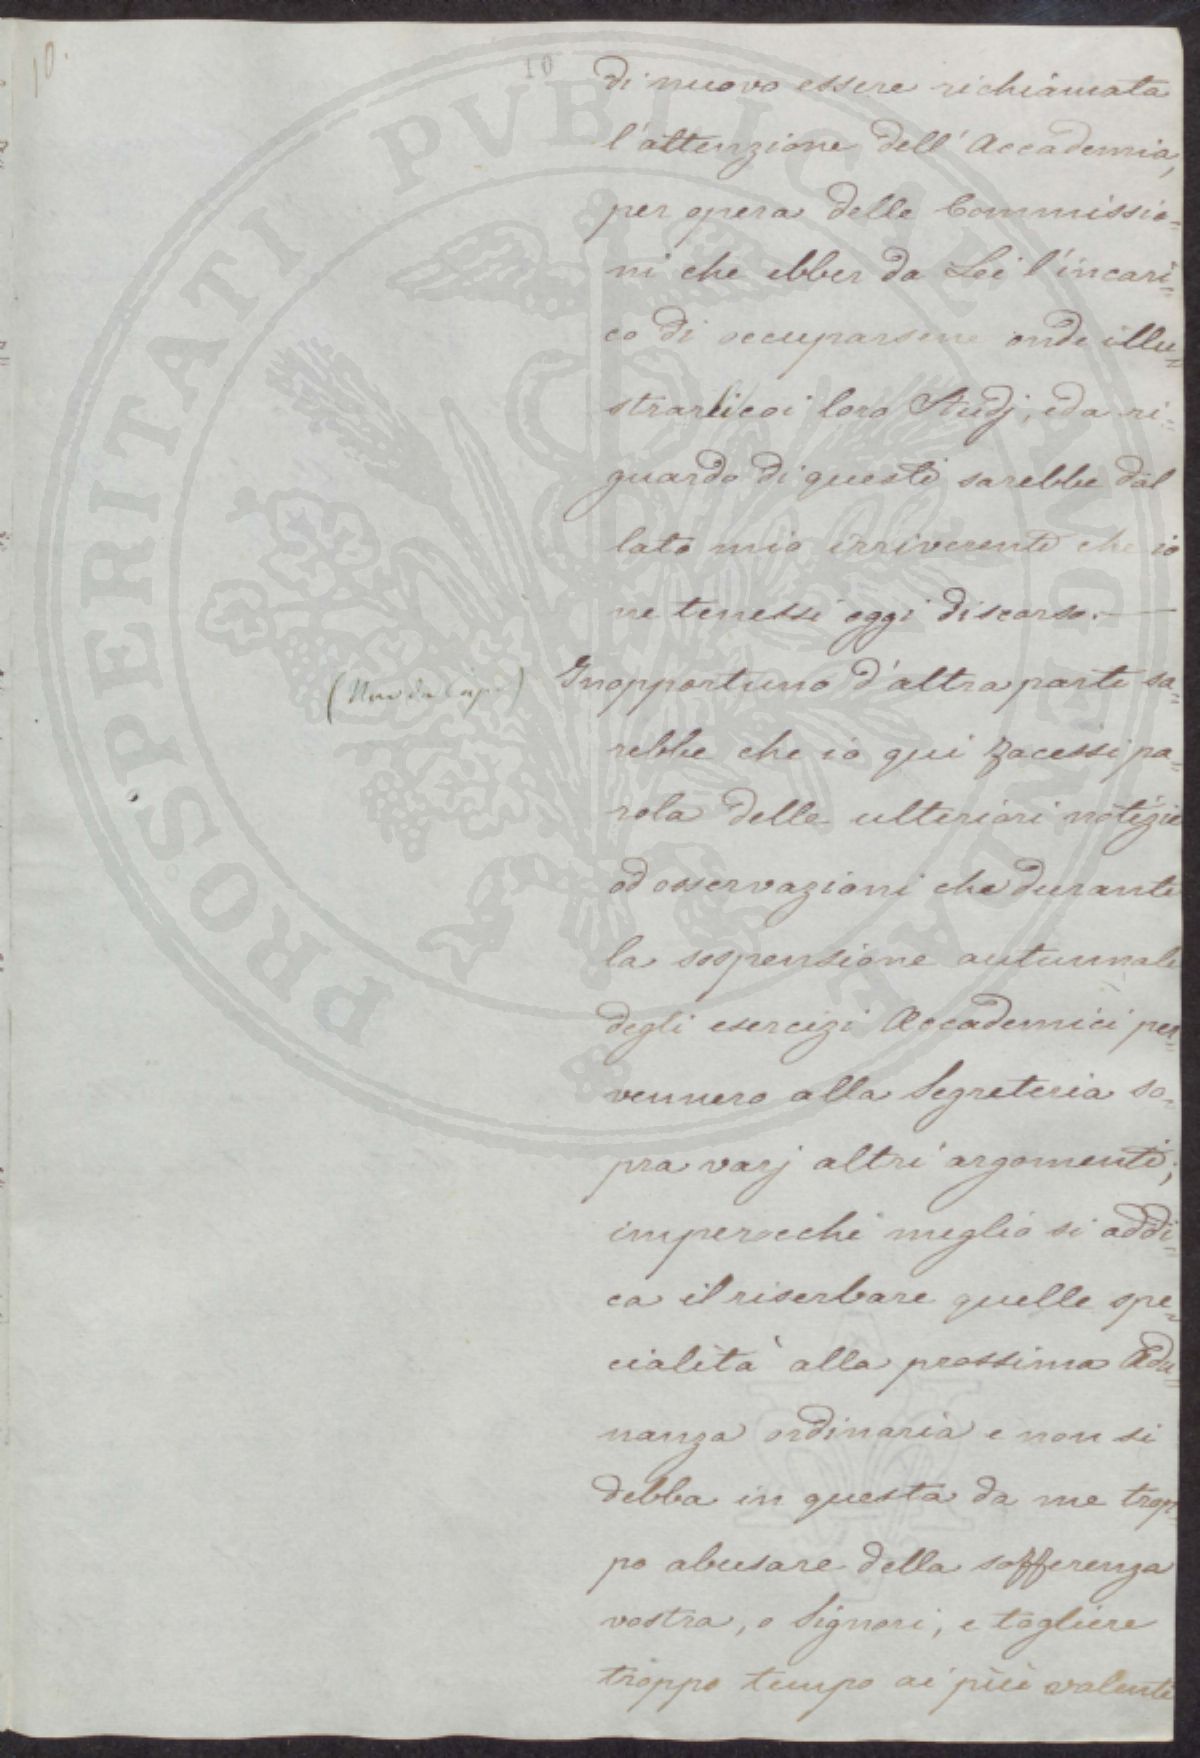 10.
10
di nuovo essere richiamata
l'attenzione dell'Accademia,
per opera delle Commissio=
ni che ebber da Lei l'incari=
co di occuparsene onde illu=
strarli coi loro Studj, ed a ri=
guardo di questi sarebbe dal
lato mio irriverente che io
ne tenessi oggi discorso. —
(Nuovo da Capo)
Inopportuno d'altra parte sa=
rebbe che io qui facessi pa=
rola delle ulteriori notizie
od osservazioni che durante
la sospensione autunnale
degli esercizi Accademici per=
vennero alla Segreteria so=
pra varj altri argomenti;
imperocché meglio si addi=
ca il riserbare quelle spe=
cialità alla prossima Adu=
nanza ordinaria e non si
debba in questa da me trop=
po abusare della sofferenza
vostra, o Signori, e togliere
troppo tempo ai più valenti
PROSPERITATI PVBLICAE AVGENDAE